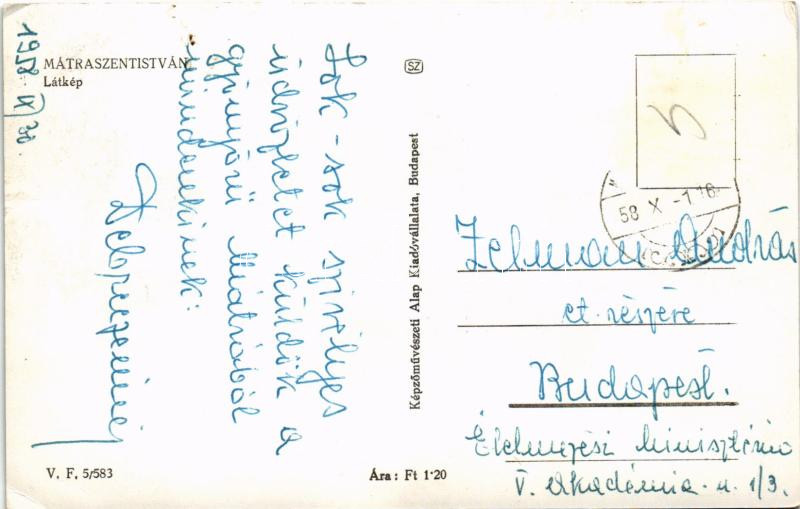 1958 IX/30.
MÁTRASZENTISTVÁN
Látkép
Sok-sok szívélyes
üdvözletet küldök a
gyönyörű Mátrából
mindenkinek:
V. F. 5/583
Ára: Ft 1·20
Képzőművészeti Alap Kiadóvállalata, Budapest
SZ
5
58 X -1 16
Zelman András
et. részére
Budapest.
Élelmezési Minisztérium
V. Akadémia u. 1/3.